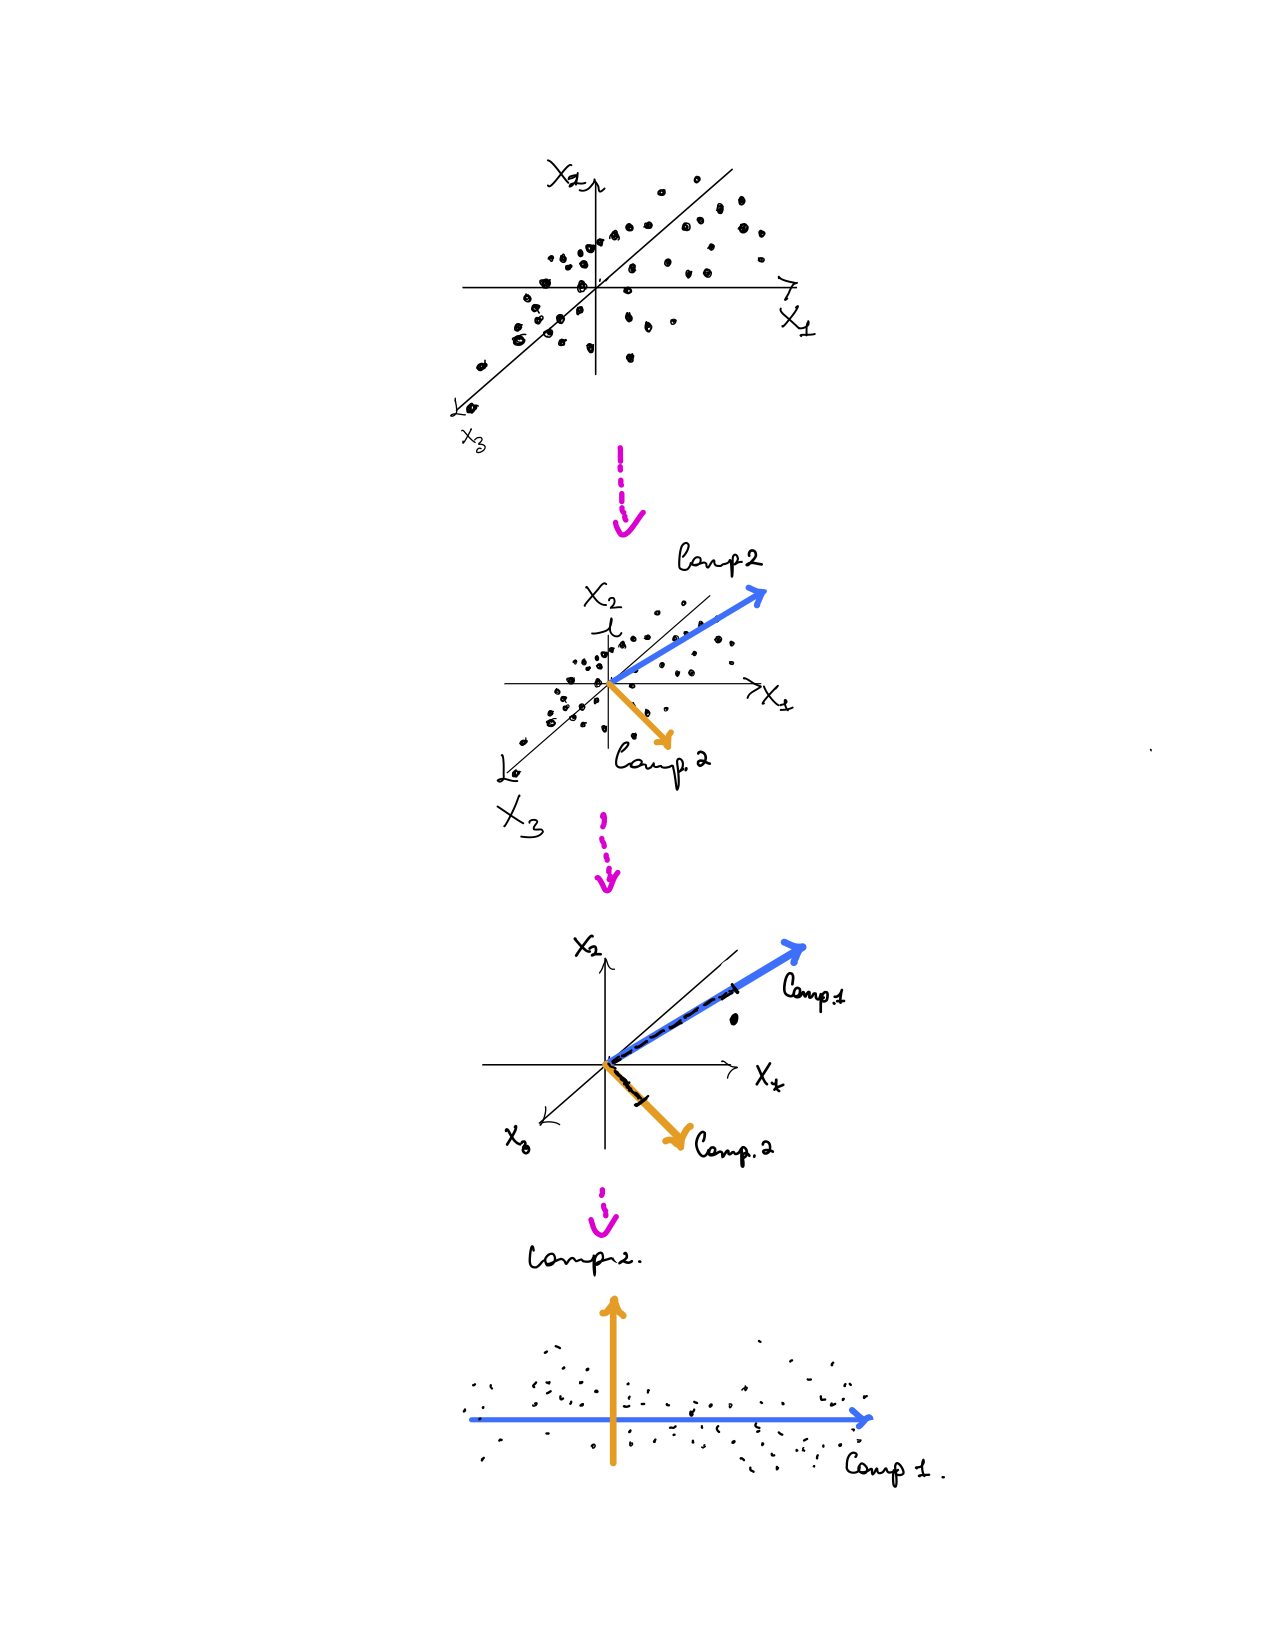 X2
X1
X3
Comp2
X2
X1
Comp. 2
X3
X2
Comp.1
X1
X3
Comp. 2
Comp 2.
Comp 1.